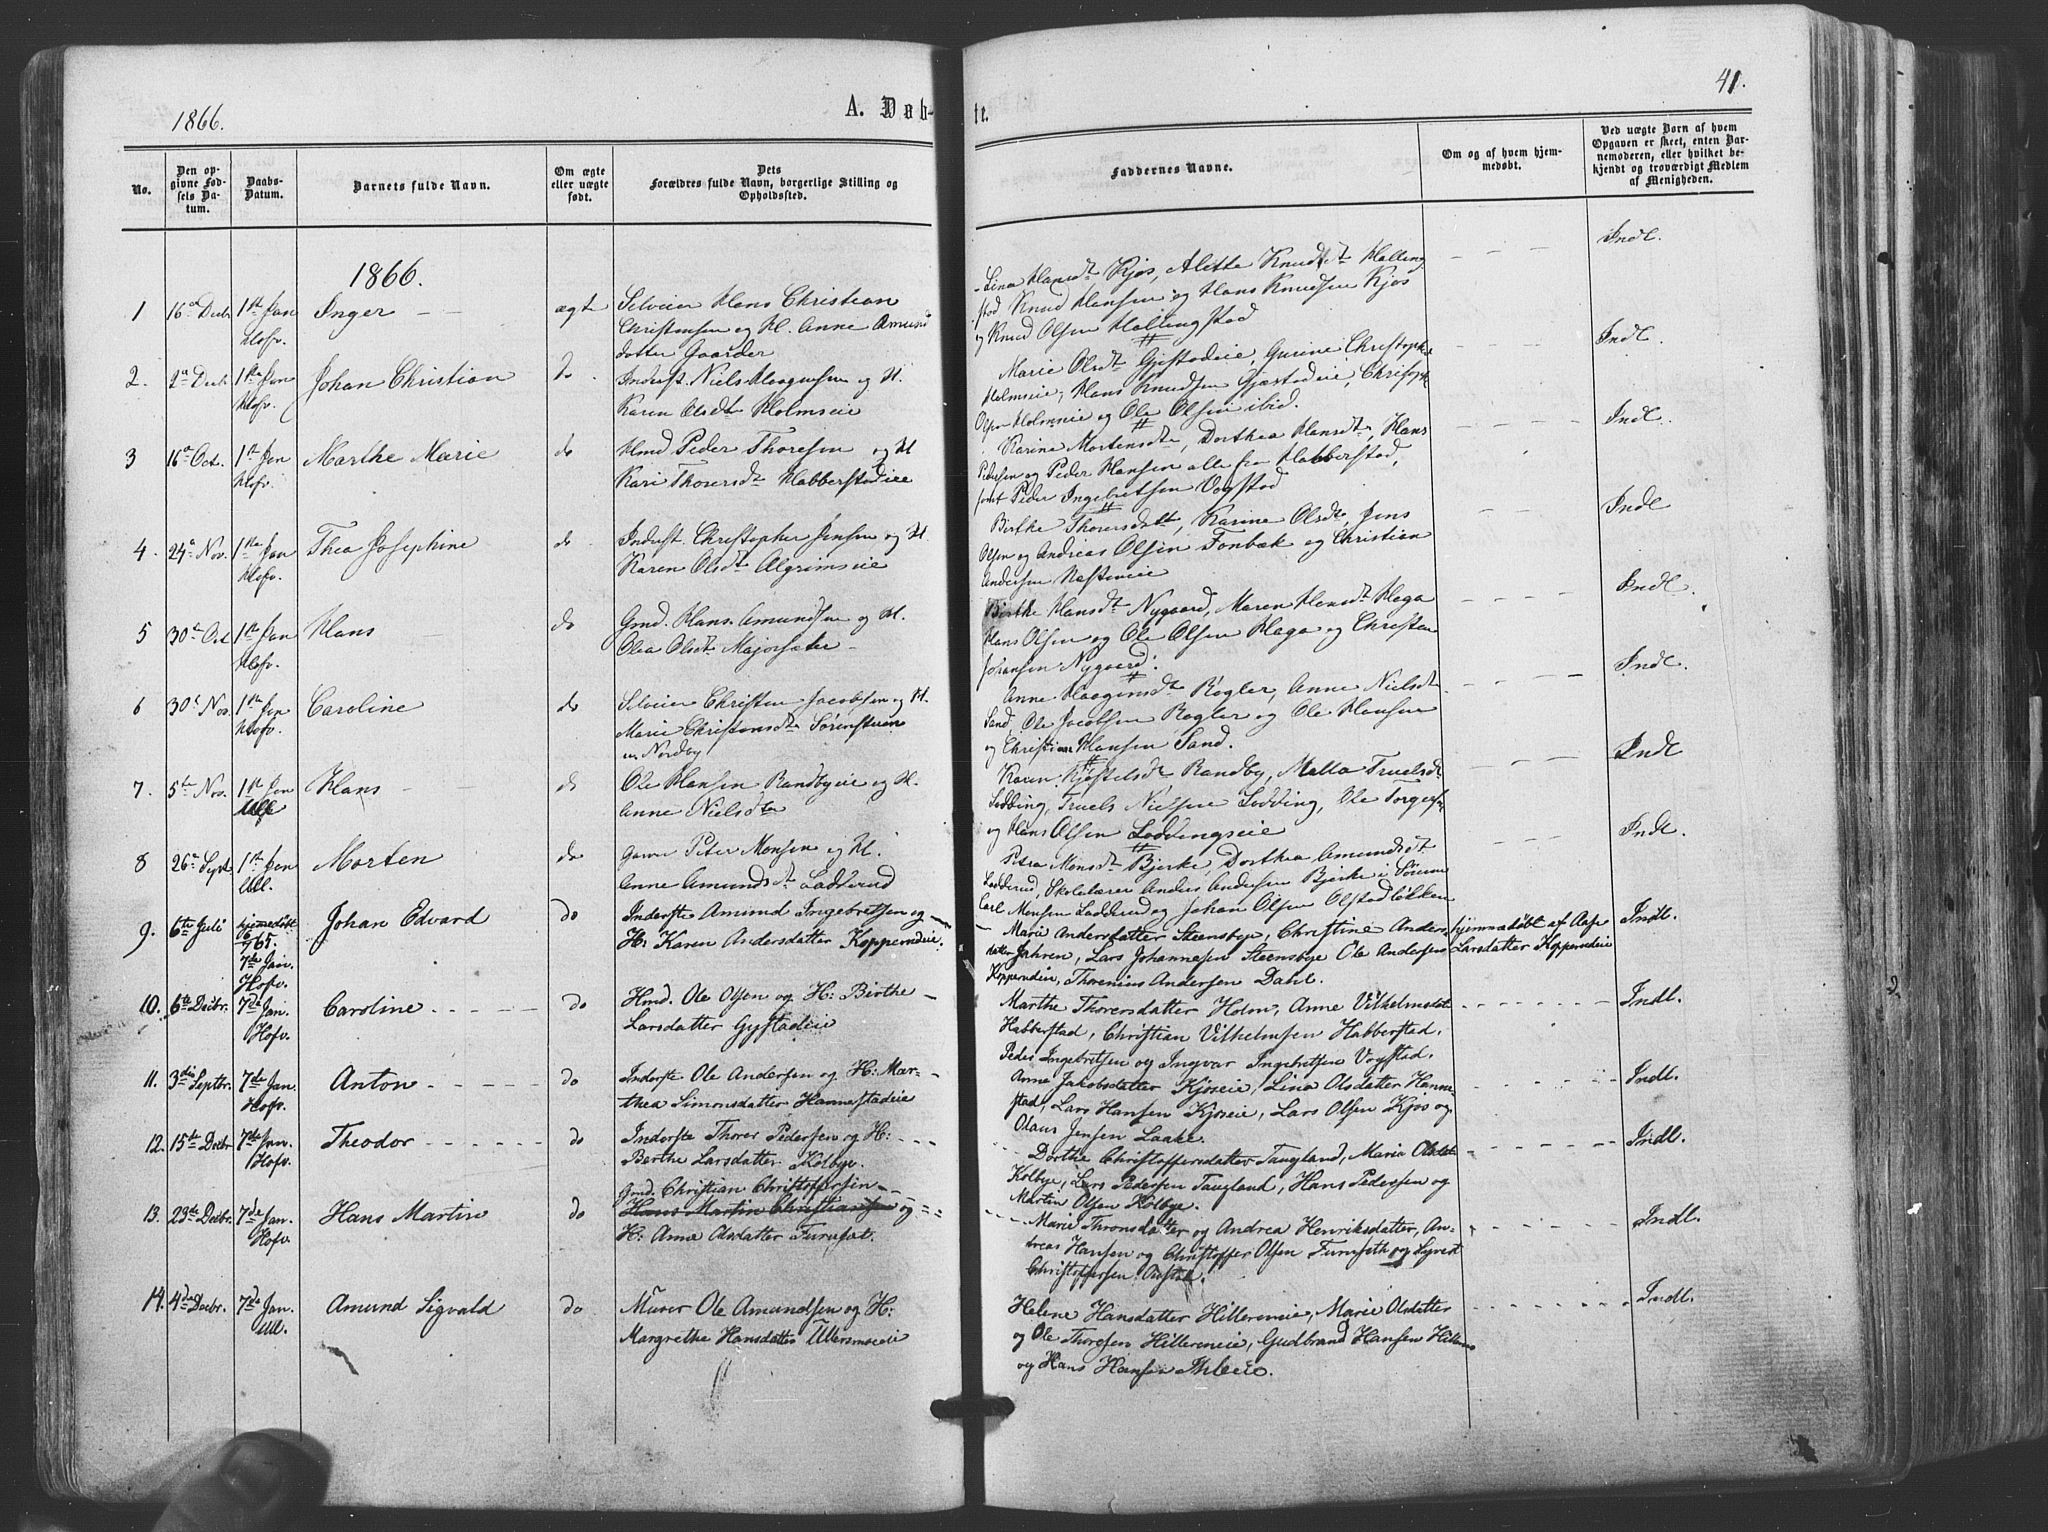 1866.
A. Døb-
te.
41.
No.
Den op-
givne Fød-
sels Da-
tum.
Daabs-
Datum.
Barnets fulde Navn.
Om ægte
eller uægte
født.
Dets
Forældres fulde Navn, borgerlige Stilling og
Opholdssted.
Faddernes Navne.
Om og af hvem hjem-
medøbt.
Ved uægte Børn af hvem
Opgaven er skeet, enten Bar-
nemoderen, eller hvilket be-
kjendt og troværdigt Medlem
af Menigheden.
1866.
1
16de Decbr
1ste Jan
Hofv.
Inger
ægte
Selveier Hans Christian
Christensen og H. Anne Amund
datter Gaarder
Lina Hansdtr Kjos, Alette Knudsdtr Halling
stad Knud Hansen og Hans Knudsen Kjos
og Knud Olsen Hallingstad
Indl.
2.
2den Decbr
1ste Jan
Hofv.
Johan Christian
do
Inderst. Niels Haagensen og H.
Karen Olsdtr Holmseie
Marie Olsdtr Gjestadeie, Gurine Christoph
Holmseie, Hans Knudsen Gjæstadeie, Christoph
Olsen Holmseie og Ole Olsen ibid.
Indl.
3
16de Oct.
1ste Jan
Hofv.
Marthe Marie
do
Hmd Peder Thoresen og H
Kari Thoresdtr Habberstadeie
Karine Mortensdtr, Dorthea Hansdtr, Hans
Pedersen og Peder Hansen alle fra Habberstad,
samt Peder Ingebretsen Vogstad
Indl.
4.
24de Nov.
1ste Jan
Hofv.
Thea Josephine
do
Inderst. Christopher Jensen og H.
Karen Olsdtr Algrimseie
Birthe Thoresdtr, Karine Olsdtr, Jens
Olsen og Andreas Olsen Fonbæk og Christian
Andersen Næsteneie
Indl
5
30te Oct
1ste Jan
Hofv.
Hans
do
Gmd. Hans Amundsen og H.
Olea Olsdtr Majorsæter
Birthe Hansdtr Nygaard, Maren Hansdtr Haga
Hans Olsen og Ole Olsen Haga og Christen
Johansen Nygaard.
Indl.
6
30te Nov.
1ste Jan
Hofv.
Caroline
do
Selveier Christen Jacobsen og H.
Marie Christensdtr Sørensteen
u. Nordby
Anne Haagensdtr Røgler, Anne Nielsdtr
Sand, Ole Jacobsen Røgler og Ole Hansen
og Christian Hansen Sand.
Indl.
7.
5te Nov.
1ste Jan
Ull
Hans
do
Ole Hansen Randbyeie og H.
Anne Nielsdtr
Karen Kjøstelsdtr Randby, Malla Truelsdtr
Lodding, Truels Nielsen Lodding, Ole Torgers
og Hans Olsen Loddingseie
Indl
8
26de Sept
1ste Jan
Ull.
Morten
do
Peter Monsen og H.
Anne Amundsdtr Ladderud
Petra Monsdtr Bjerke, Dorthea Amundsdtr
Ladderud, Skolelærer Anders Andersen Bjerke i Sørum
Carl Monsen Ladderud og Johan Olsen Olstadløkken
Indl.
9.
6te Juli
hjemmedøbt
7/6 65.
7de Jan.
Hofv.
Johan Edvard
do
Inderste Amund Ingebretsen og
H: Karen Andersdatter Kopperudeie.
Marie Andersdatter Steensbye, Christine Anders-
datter Jahren, Lars Johannesen Steensbye Ole Andersen
Kopperudeie, Thorenius Andersen Dahl.
hjemmedøbt af Aase
Larsdatter Kopperudeie
Indl.
10.
6te Decbr.
7de Jan.
Hofv.
Caroline
do
Hmd. Ole Olsen og H: Birthe
Larsdatter Gystadeie
Marthe Thorersdatter Holm, Anne Vilhelmsdat
Habberstad, Christian Vilhelmsen Habberstad,
Peder Ingebretsen og Ingvar Ingebretsen Vogstad.
Indl.
11.
3die Septbr.
7de Jan.
Hofv.
Anton
do
Inderste Ole Andersen og H: Mar-
thea Simonsdatter Hannestadeie
Anne Jakobsdatter Kjoseie, Lina Olsdatter Hanne-
stad, Lars Hansen Kjoseie, Lars Olsen Kjos og
Olaus Jensen Laake.
Indl.
12.
15de Decbr
7de Jan.
Hofv.
Theodor
do
Inderste Thorer Pedersen og H:
Berthe Larsdatter Kolbye.
Dorthe Christoffersdatter Taugland, Maria Olsdat
Kolbye, Lars Pedersen Taugland, Hans Pedersen og
Martin Olsen Kolbye.
Indl.
13.
23de Decbr.
7de Jan.
Hofv.
Hans Martin
do
Gmd. Christian Christoffersen
Hans Martin Christiansen og
H: Anne Olsdatter Furuset.
Marie Thronsdatter og Andrea Henriksdatter, An-
dreas Hansen og Christoffer Olsen Furuseth og Syvert
Christoffersen
Indl.
14.
4de Decbr.
7de Jan.
Ull.
Amund Sigvald
do
Murer Ole Amundsen og H:
Margrethe Hansdatter Ullersmoeie
Helene Hansdatter Hillereneie, Marie Olsdatter
og Ole Thoresen Hillereneie, Gudbrand Hansen Hilleren
og Hans Hansen
Indl.